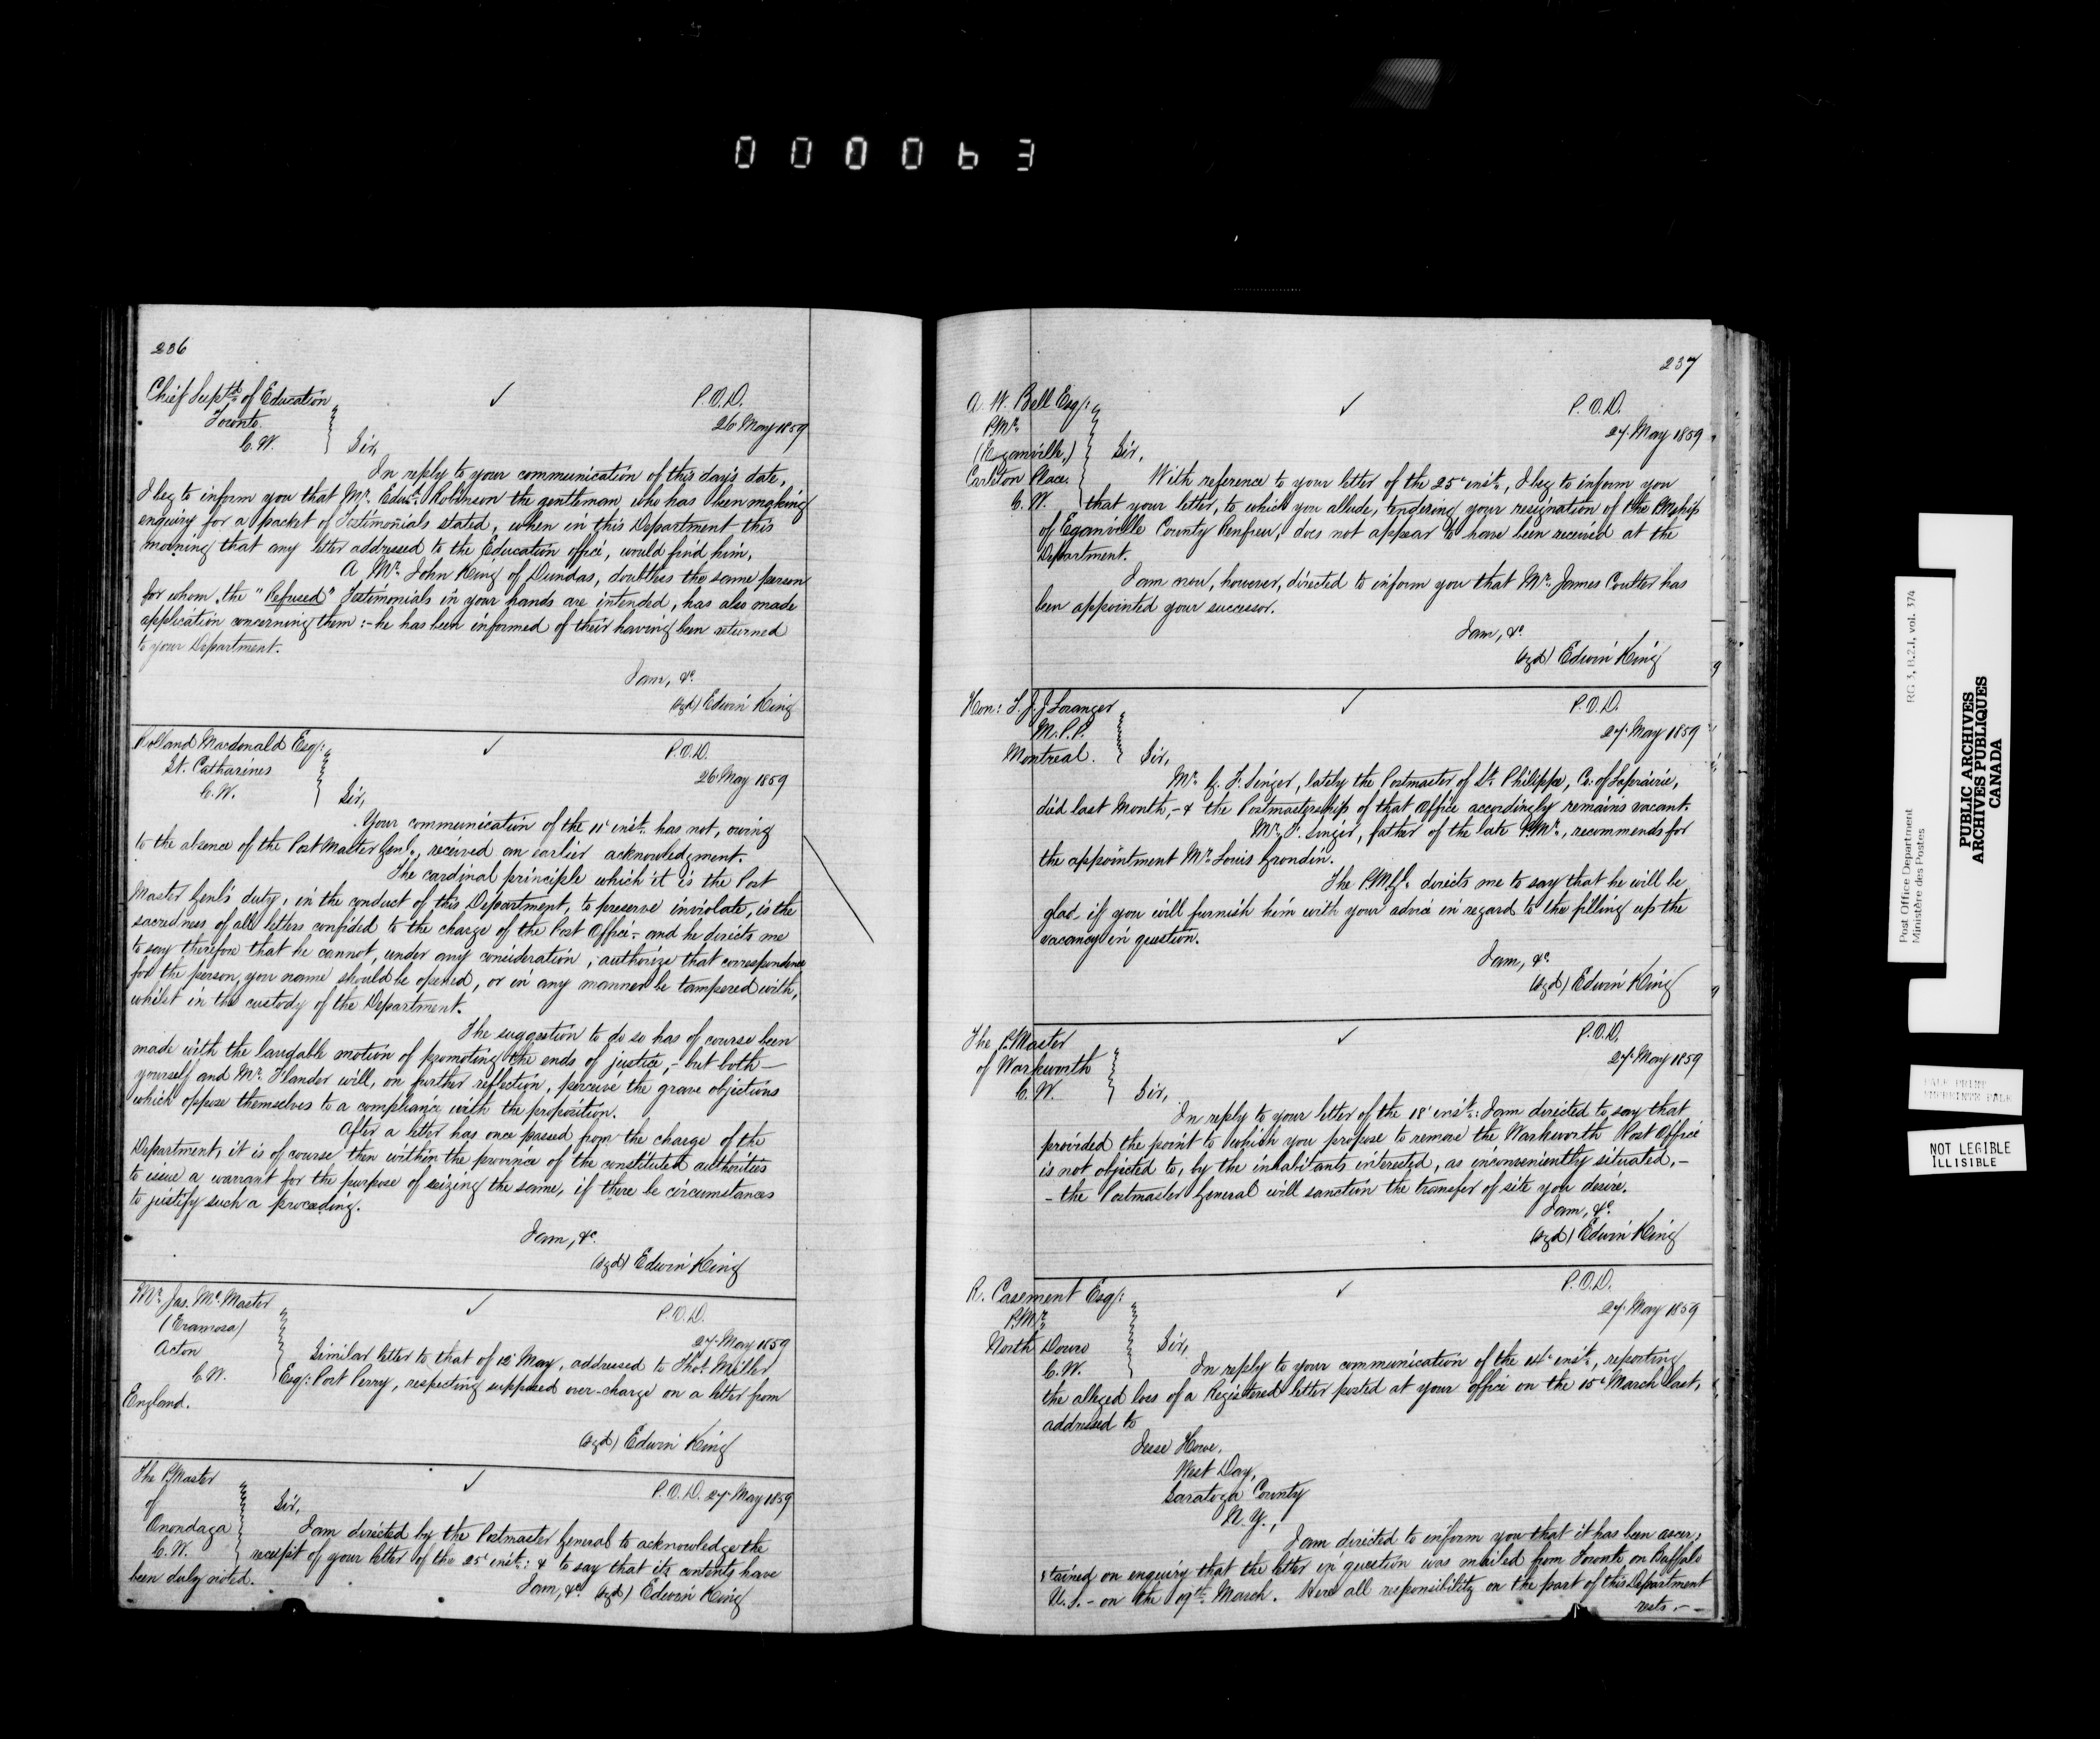 000063
236
Chief Supt. of Education
Toronto.
C.W.
✓
P.O.D.
26 May 1859
Sir,
In reply to your communication of this day's date,
I beg to inform you that Mr. Edwd. Robinson the gentleman who has been making
enquiry for a packet of Testimonials stated, when in this Department this
morning that any letter addressed to the Education office, would find him,
A Mr. John King of Dundas, doubtless the same person
for whom the "Refused" Testimonials in your hands are intended, has also made
application concerning them :- he has been informed of their having been returned
to your Department.
I am, &c.
(sgd) Edwin King
Rolland Macdonald Esq:
St. Catharines
C.W.
✓
P.O.D.
26 May 1859
Sir,
Your communication of the 11t inst. has not, owing
to the absence of the Post Master Genl., received an earlier acknowledgment.
The cardinal principle which it is the Post
Master Genl's duty, in the conduct of this Department, to preserve inviolate, is the
sacredness of all letters confided to the charge of the Post Office - and he directs me
to say therefore that he cannot, under any consideration, authorize that correspondence
for the person you name should be opened, or in any manner be tampered with,
whilst in the custody of the Department.
The suggestion to do so has of course been
made with the laudable motion of promoting the ends of justice, - but both -
yourself and Mr. Flander will, on further reflection, perceive the grave objections
which oppose themselves to a compliance with the proposition.
After a letter has once passed from the charge of the
Department, it is of course then within the province of the constituted authorities
to issue a warrant for the purpose of seizing the same, if there be circumstances
to justify such a proceeding.
I am, &c.
(sgd) Edwin King
Mr. Jas. McMaster
(Eramosa)
Acton
C.W.
✓
P.O.D.
27 May 1859
Similar letter to that of 12 May, addressed to Thos. Miller
Esq: Port Perry, respecting supposed over-charge on a letter from
England.
(sgd) Edwin King
The P.Master
of
Onondaga
C.W.
✓
P.O.D. 27 May 1859
Sir,
I am directed by the Postmaster General to acknowledge the
receipt of your letter of the 25t inst: & to say that its contents have
been duly noted.
I am, &c. (sgd) Edwin King
237
A. W. Bell Esq:
P.Mr.
(Eganville,)
Carlton Place.
C.W.
✓
P.O.D.
27 May 1859
Sir,
With reference to your letter of the 25t inst., I beg to inform you
that your letter, to which you allude, tendering your resignation of the PMship
of Eganville County Renfrew, does not appear to have been received at the
Department.
I am now, however, directed to inform you that Mr. James Coulter has
been appointed your successor.
I am, &c.
(sgd) Edwin King
Hon: T. J. J. Loranger
M.P.P.
Montreal.
✓
P.O.D.
27 May 1859
Sir,
Mr. G. F. Singer, lately the Postmaster of St. Philippe, Co: of Laprairie,
did last Month, - & the Postmastership of that Office accordingly remains vacant.
Mr. F. Singer, father of the late P.Mr., recommends for
the appointment Mr. Louis Grondin.
The P.M.Gl. directs me to say that he will be
glad if you will furnish him with your advice in regard to the filling up the
vacancy in question.
I am, &c.
(sgd) Edwin King
The P.Master
of Warkworth
C.W.
✓
P.O.D.
27 May 1859
Sir,
In reply to your letter of the 18t inst: I am directed to say that
provided the point to which you propose to remove the Warkworth Post Office
is not objected to, by the inhabitants interested, as inconveniently situated, -
- the Postmaster General will sanction the transfer of site you desire.
I am, &c.
(sgd) Edwin King
R. Casement Esq:
P.Mr.
North Douro
C.W.
✓
P.O.D.
27 May 1859
Sir,
In reply to your communication of the 14t inst., reporting
the alleged loss of a Registered letter posted at your office on the 15t March last,
addressed to
Jesse Howe,
West Day,
Saratoga County
N.Y.,
I am directed to inform you that it has been ascer,
,tained on enquiry that the letter in question was mailed from Toronto on Buffalo
U.S. - on the 19th. March. Here all responsibility on the part of this Department
rests - -
Post Office Department
Ministère des Postes
RG 3, B.2.1, vol. 374
PUBLIC ARCHIVES
ARCHIVES PUBLIQUES
CANADA
PALE PRINT
NOT LEGIBLE
ILLISIBLE